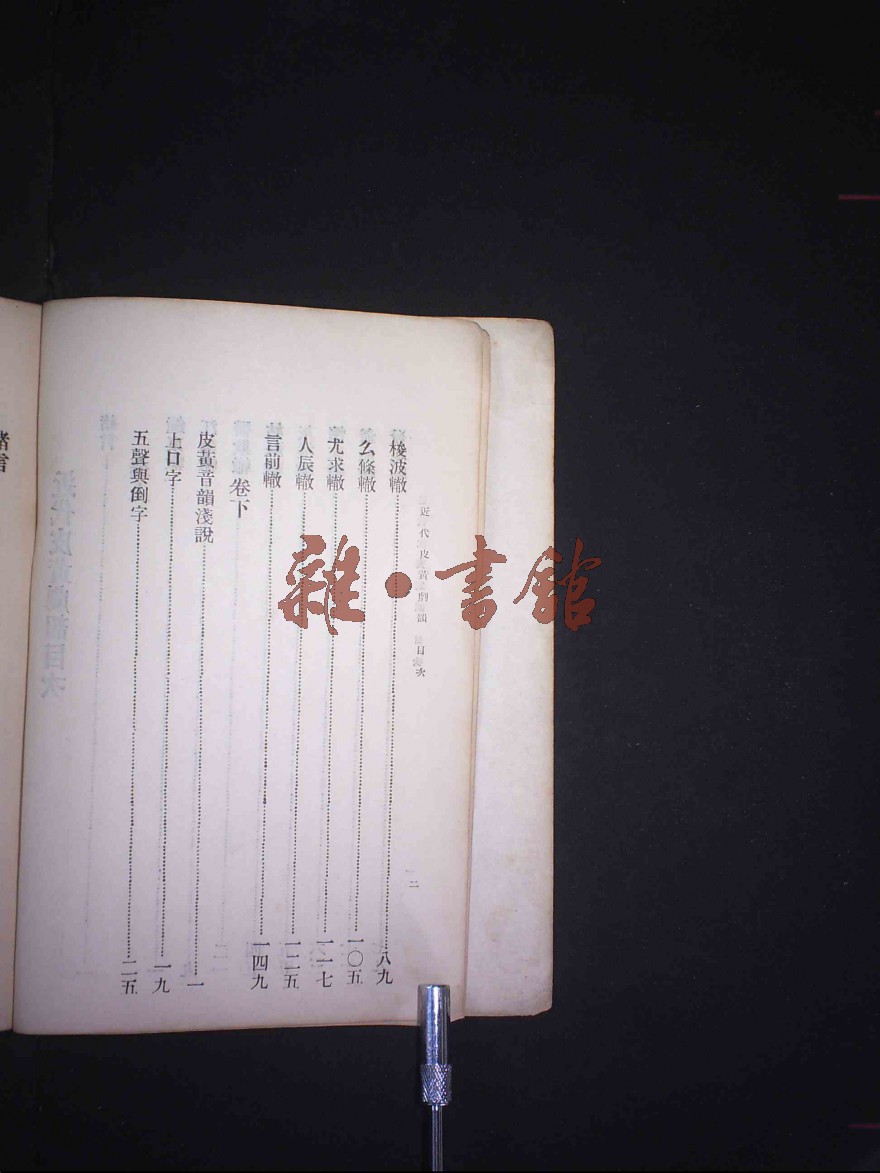 近代皮黃劇韻 目次 二
梭波轍……八九
么條轍……一〇五
尤求轍……一一七
人辰轍……一二五
言前轍……一四九
卷下
皮黃音韻淺說……一
上口字……一九
五聲與倒字……二五
緒言
雜·書館